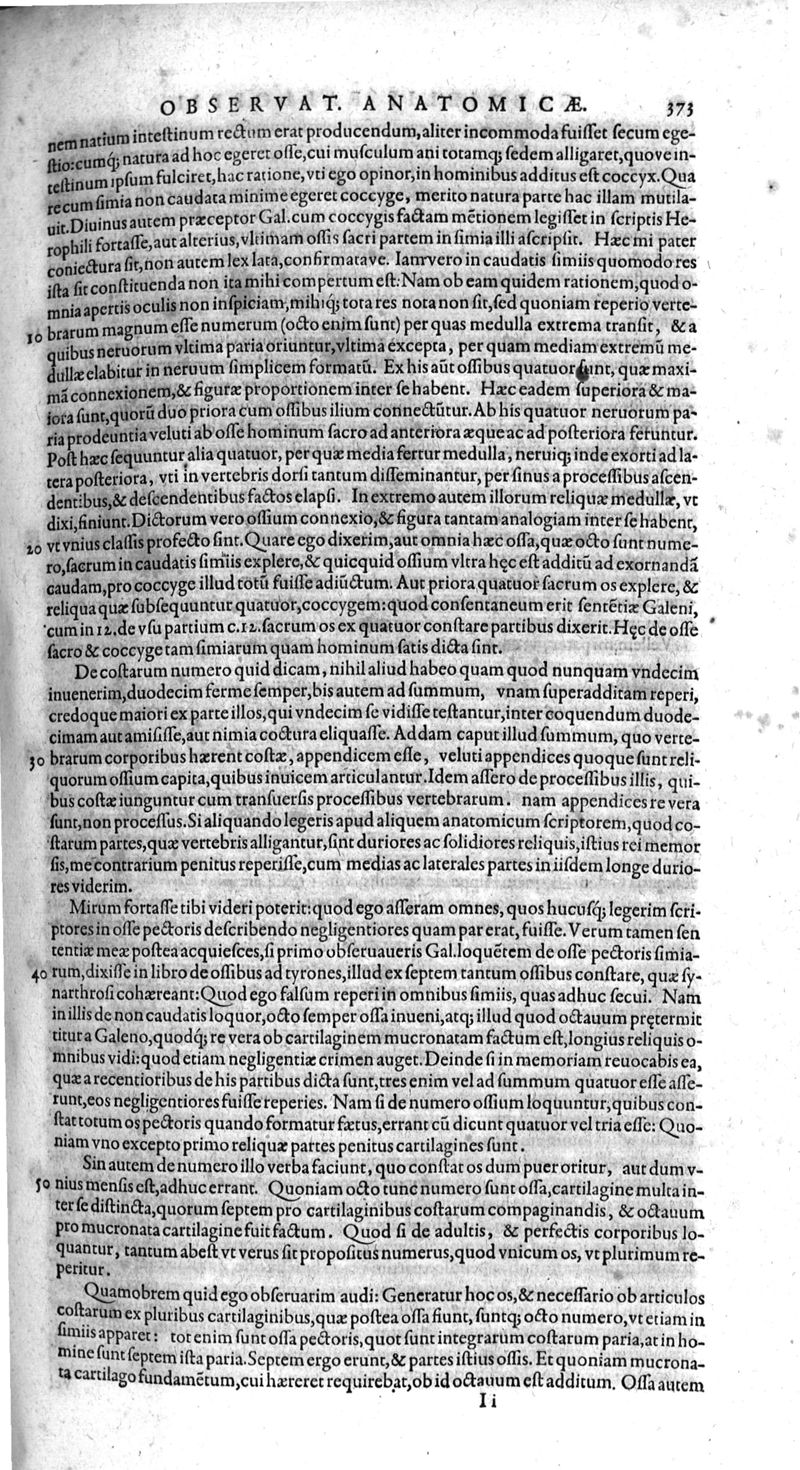 OBSERVAT. ANATOMICÆ. 373
nem natium intestinum rectum erat producendum, aliter incommoda fuisset secum ege-
stio: cumq́; natura ad hoc egeret osse, cui musculum ani totamq; sedem alligaret, quove in-
testinum ipsum fulciret, hac ratione, vti ego opinor, in hominibus additus est coccyx. Qua
re cum simia non caudata minime egeret coccyge, merito natura parte hac illam mutila-
uit. Diuinus autem præceptor Gal. cum coccygis factam mẽtionem legisset in scriptis He-
rophili fortasse, aut alterius, vltimam ossis sacri partem in simia illi ascripsit. Hæc mi pater
coniectura sit, non autem lex lata, confirmatave. Iam vero in caudatis simiis quomodo res
ista sit constituenda non ita mihi compertum est: Nam ob eam quidem rationem, quod o-
mnia apertis oculis non inspiciam, mihiq́; tota res nota non sit, sed quoniam reperio verte-
10 brarum magnum esse numerum (octo enim sunt) per quas medulla extrema transit, & a
quibus neruorum vltima paria oriuntur, vltima excepta, per quam mediam extremũ me-
dullæ elabitur in neruum simplicem formatũ. Ex his aũt ossibus quatuor sunt, quæ maxi-
mã connexionem, & figuræ proportionem inter se habent. Hæc eadem superiora & ma-
iora sunt, quorũ duo priora cum ossibus ilium connectũtur. Ab his quatuor neruorum pa-
ria prodeuntia veluti ab osse hominum sacro ad anteriora æque ac ad posteriora feruntur.
Post hæc sequuntur alia quatuor, per quæ media fertur medulla, neruiq; inde exorti ad la-
tera posteriora, vti in vertebris dorsi tantum disseminantur, per sinus a processibus ascen-
dentibus, & descendentibus factos elapsi. In extremo autem illorum reliquæ medullæ, vt
dixi, finiunt. Dictorum vero ossium connexio, & figura tantam analogiam inter se habent,
20 vt vnius classis profecto sint. Quare ego dixerim, aut omnia hæc ossa, quæ octo sunt nume-
ro, sacrum in caudatis simiis explere, & quicquid ossium vltra hęc est additũ ad exornandã
caudam, pro coccyge illud totũ fuisse adiũctum. Aut priora quatuor sacrum os explere, &
reliqua quæ subsequuntur quatuor, coccygem: quod consentaneum erit sentẽtiæ Galeni,
cum in 12. de vsu partium c. 12. sacrum os ex quatuor constare partibus dixerit. Hęc de osse
sacro & coccyge tam simiarum quam hominum satis dicta sint.
De costarum numero quid dicam, nihil aliud habeo quam quod nunquam vndecim
inuenerim, duodecim ferme semper, bis autem ad summum, vnam superadditam reperi,
credoque maiori ex parte illos, qui vndecim se vidisse testantur, inter coquendum duode-
cimam aut amisisse, aut nimia coctura eliquasse. Addam caput illud summum, quo verte-
30 brarum corporibus hærent costæ, appendicem esse, veluti appendices quoque sunt reli-
quorum ossium capita, quibus inuicem articulantur. Idem assero de processibus illis, qui-
bus costæ iunguntur cum transuersis processibus vertebrarum. nam appendices re vera
sunt, non processus. Si aliquando legeris apud aliquem anatomicum scriptorem, quod co-
starum partes, quæ vertebris alligantur, sint duriores ac solidiores reliquis, istius rei memor
sis, me contrarium penitus reperisse, cum medias ac laterales partes in iisdem longe durio-
res viderim.
Mirum fortasse tibi videri poterit: quod ego asseram omnes, quos hucusq́; legerim scri-
ptores in osse pectoris describendo negligentiores quam par erat, fuisse. Verum tamen sen
tentiæ meæ postea acquiesces, si primo obseruaueris Gal. loquẽtem de osse pectoris simia-
40 rum, dixisse in libro de ossibus ad tyrones, illud ex septem tantum ossibus constare, quæ sy-
narthrosi cohæreant: Quod ego falsum reperi in omnibus simiis, quas adhuc secui. Nam
in illis de non caudatis loquor, octo semper ossa inueni, atq; illud quod octauum prętermit
titur a Galeno, quodq́; re vera ob cartilaginem mucronatam factum est, longius reliquis o-
mnibus vidi: quod etiam negligentiæ crimen auget. Deinde si in memoriam reuocabis ea,
quæ a recentioribus de his partibus dicta sunt, tres enim vel ad summum quatuor esse asse-
runt, eos negligentiores fuisse reperies. Nam si de numero ossium loquuntur, quibus con-
stat totum os pectoris quando formatur fœtus, errant cũ dicunt quatuor vel tria esse: Quo-
niam vno excepto primo reliquæ partes penitus cartilagines sunt.
Sin autem de numero illo verba faciunt, quo constat os dum puer oritur, aut dum v-
50 nius mensis est, adhuc errant. Quoniam octo tunc numero sunt ossa, cartilagine multa in-
ter se distincta, quorum septem pro cartilaginibus costarum compaginandis, & octauum
pro mucronata cartilagine fuit factum. Quod si de adultis, & perfectis corporibus lo-
quantur, tantum abest vt verus sit propositus numerus, quod vnicum os, vt plurimum re-
peritur.
Quamobrem quid ego obseruarim audi: Generatur hoc os, & necessario ob articulos
costarum ex pluribus cartilaginibus, quæ postea ossa fiunt, suntq; octo numero, vt etiam in
simiis apparet: tot enim sunt ossa pectoris, quot sunt integrarum costarum paria, at in ho-
mine sunt septem ista paria. Septem ergo erunt, & partes istius ossis. Et quoniam mucrona-
ta cartilago fundamẽtum, cui hæreret requirebat, ob id octauum est additum. Ossa autem
Ii